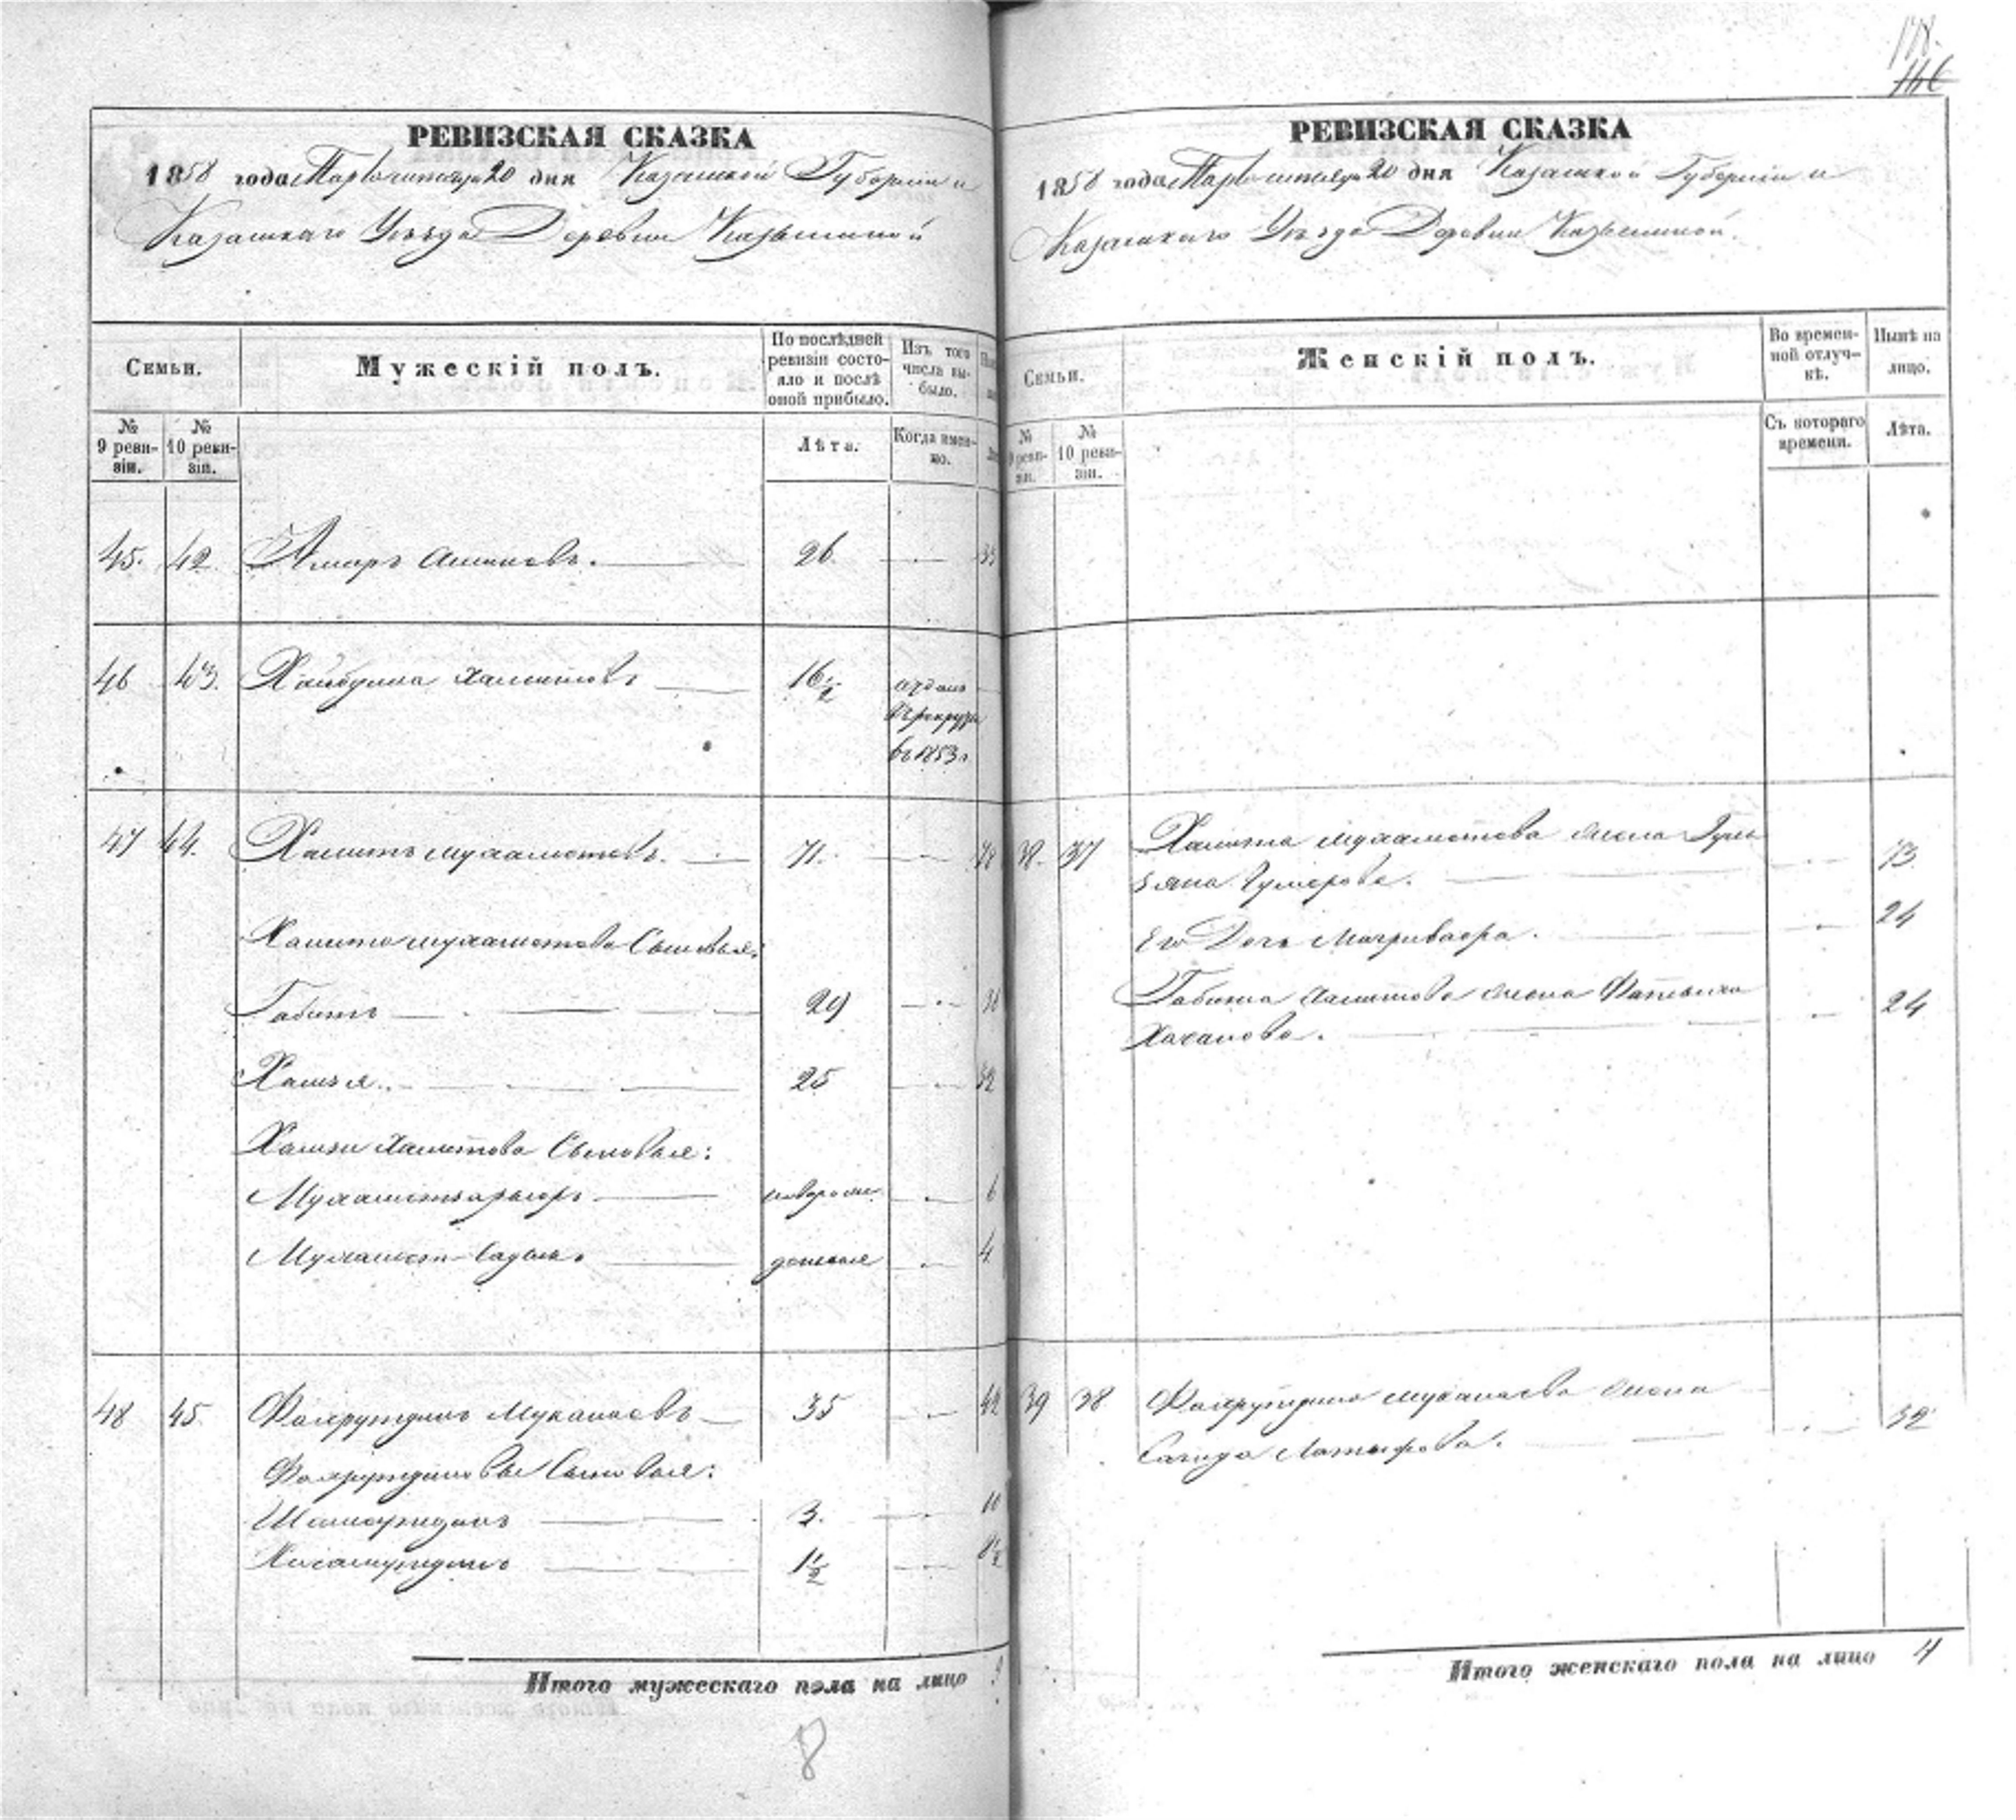 178.
146
РЕВИЗСКАЯ СКАЗКА
1858 года Марта месяца 20 дня Казанской Губернии и
Казанскаго Уѣзда Деревни
Семьи.
Мужескій полъ.
По послѣдней ревизіи состояло и послѣ оной прибыло.
Изъ того числа выбыло.
№ 9 ревизіи.
№ 10 ревизіи.
Лѣта.
Когда именно.
45. 42. Амиръ 26 — 33
46 43. Хайбулла Халитовъ 16½ отданъ
въ рекруты
въ 1853 г.
47 44. Халитъ Мухаметовъ. 71. — 78
Халита Мухаметова Сыновья:
Габитъ 29 —
Хамзя. 25 — 32
Хамзи Халитова Сыновья:
новорож — 6
Мухамет-Садык. — 4
48 45. Фахрутдинъ 35 — 42
Фахрутдиновы Сыновья:
3. — 10
Хисамутдинъ 1½ — 8½
Итого мужескаго пола на лицо 9
8
РЕВИЗСКАЯ СКАЗКА
1858 года Марта месяца 20 дня Казанской Губернии и
Казанскаго Уѣзда Деревни
Семьи.
Женскій полъ.
Во временной отлучкѣ.
Нынѣ на лицо.
№ 9 ревизіи.
№ 10 ревизіи.
Съ котораго времени.
Лѣта.
38. 37 Халита Мухаметова жена Гуль
73.
Его Дочь 24
Габита Халитова жена
24
39 38 Фахрутдина жена
Сагида Латыфова. 32
Итого женскаго пола на лицо 4